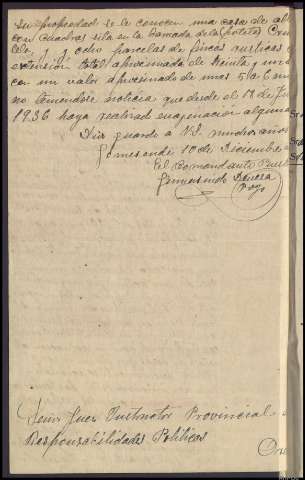 su propiedad se le conocen una casa de al
con cuadras sita en la
y ocho parcelas de fincas rusticas
extensión total aproximada de treinta y un
con un valor aproximado de unas 5
no teniendose noticia que desde el 18 de Ju
1936 haya realizado enagenación alguna
Dios guarde a V.S. muchos años
Gomesende 10 de Diciembre
El Comandante Pues
Gumersindo
Señor Juez Instructor Provincial
Responsabilidades Politicas